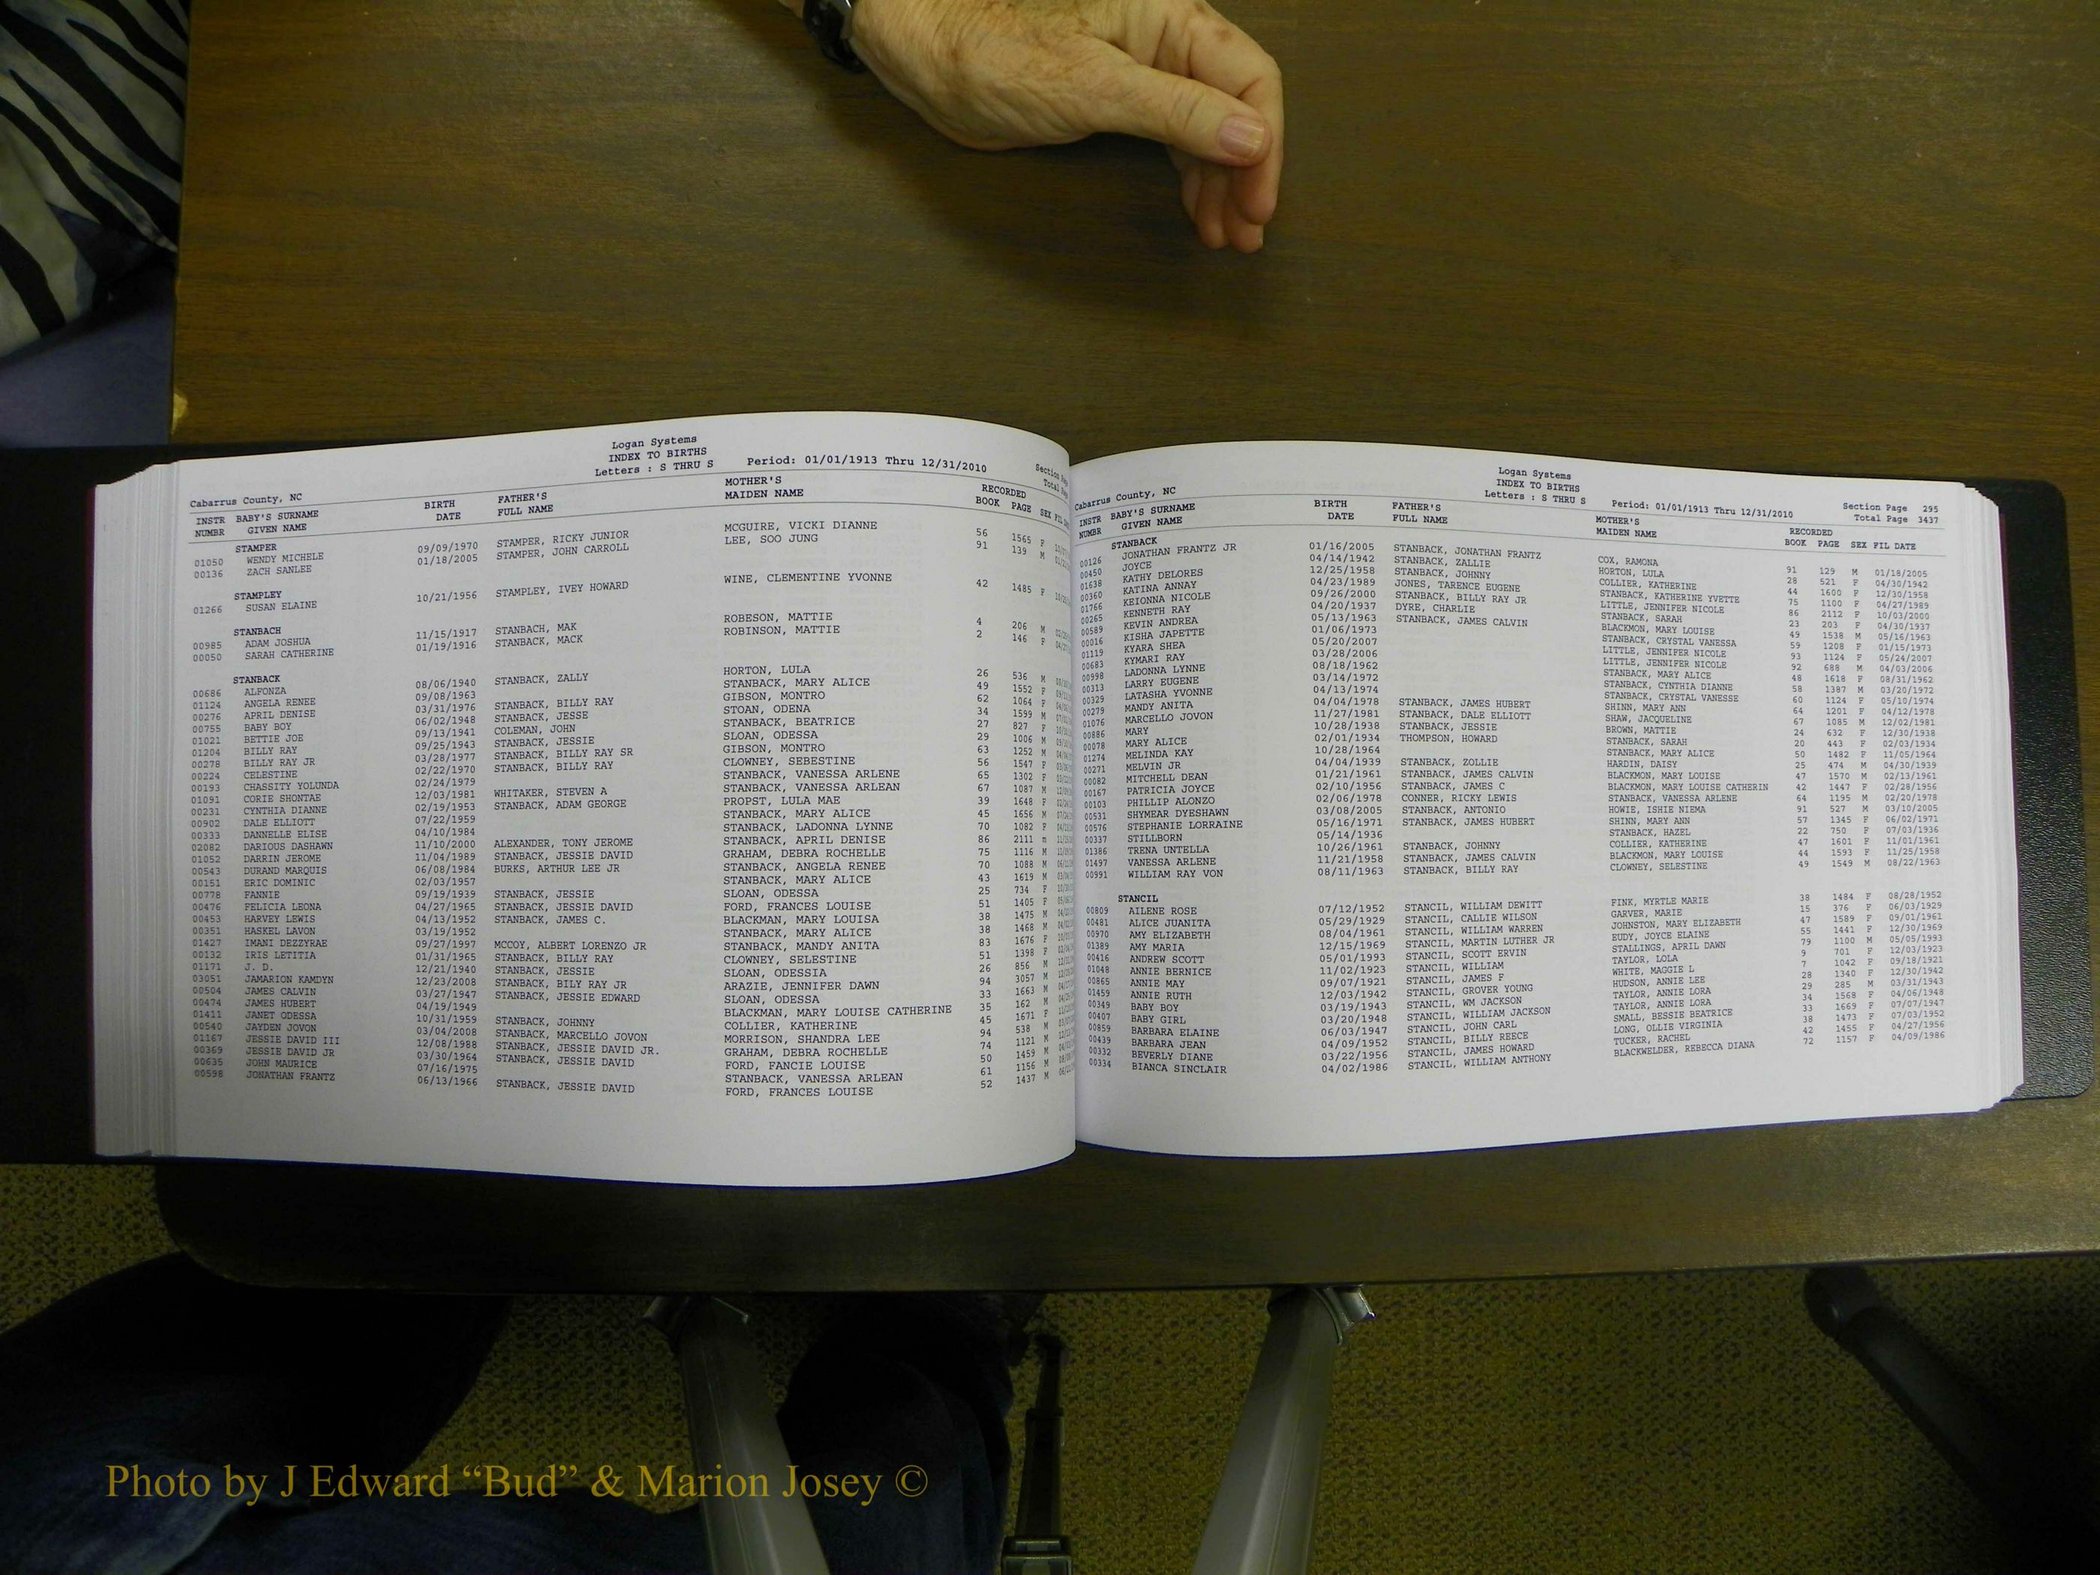 Logan Systems
INDEX TO BIRTHS
Letters : S THRU S Period: 01/01/1913 Thru 12/31/2010
Cabarrus County, NC
INSTR BABY'S SURNAME BIRTH FATHER'S MOTHER'S RECORDED
NUMBR GIVEN NAME DATE FULL NAME MAIDEN NAME BOOK PAGE SEX FIL
STAMPER
01050 WENDY MICHELE 09/09/1970 STAMPER, RICKY JUNIOR MCGUIRE, VICKI DIANNE 56 1565 F
00136 ZACH SANLEE 01/18/2005 STAMPER, JOHN CARROLL LEE, SOO JUNG 91 139 M
STAMPLEY
01266 SUSAN ELAINE 10/21/1956 STAMPLEY, IVEY HOWARD WINE, CLEMENTINE YVONNE 42 1485 F
STANBACH
00985 ADAM JOSHUA 11/15/1917 STANBACH, MAK ROBESON, MATTIE 4 206 M
00050 SARAH CATHERINE 01/19/1916 STANBACK, MACK ROBINSON, MATTIE 2 146 F
STANBACK
00686 ALFONZA 08/06/1940 STANBACK, ZALLY HORTON, LULA 26 536 M
01124 ANGELA RENEE 09/08/1963 STANBACK, MARY ALICE 49 1552 F
00276 APRIL DENISE 03/31/1976 STANBACK, BILLY RAY GIBSON, MONTRO 62 1064 F
00755 BABY BOY 06/02/1948 STANBACK, JESSE STOAN, ODENA 34 1599 M
01021 BETTIE JOE 09/13/1941 COLEMAN, JOHN STANBACK, BEATRICE 27 827 F
01204 BILLY RAY 09/25/1943 STANBACK, JESSIE SLOAN, ODESSA 29 1006 M
00278 BILLY RAY JR 03/28/1977 STANBACK, BILLY RAY SR GIBSON, MONTRO 63 1252 M
00224 CELESTINE 02/22/1970 STANBACK, BILLY RAY CLOWNEY, SEBESTINE 56 1547 F
00193 CHASSITY YOLUNDA 02/24/1979 STANBACK, VANESSA ARLENE 65 1302 F
01091 CORIE SHONTAE 12/03/1981 WHITAKER, STEVEN A STANBACK, VANESSA ARLEAN 67 1087 M
00231 CYNTHIA DIANNE 02/19/1953 STANBACK, ADAM GEORGE PROPST, LULA MAE 39 1648 F
00902 DALE ELLIOTT 07/22/1959 STANBACK, MARY ALICE 45 1656 M
00333 DANNELLE ELISE 04/10/1984 STANBACK, LADONNA LYNNE 70 1082 F
02082 DARIOUS DASHAWN 11/10/2000 ALEXANDER, TONY JEROME STANBACK, APRIL DENISE 86 2111 m
01052 DARRIN JEROME 11/04/1989 STANBACK, JESSIE DAVID GRAHAM, DEBRA ROCHELLE 75 1116 M
00543 DURAND MARQUIS 06/08/1984 BURKS, ARTHUR LEE JR STANBACK, ANGELA RENEE 70 1088 M
00151 ERIC DOMINIC 02/03/1957 STANBACK, MARY ALICE 43 1619 M
00778 FANNIE 09/19/1939 STANBACK, JESSIE SLOAN, ODESSA 25 734 F
00476 FELICIA LEONA 04/27/1965 STANBACK, JESSIE DAVID FORD, FRANCES LOUISE 51 1405 F
00453 HARVEY LEWIS 04/13/1952 STANBACK, JAMES C. BLACKMAN, MARY LOUISA 38 1475 M
00351 HASKEL LAVON 03/19/1952 STANBACK, MARY ALICE 38 1468 M
01427 IMANI DEZZYRAE 09/27/1997 MCCOY, ALBERT LORENZO JR STANBACK, MANDY ANITA 83 1676 F
00132 IRIS LETITIA 01/31/1965 STANBACK, BILLY RAY CLOWNEY, SELESTINE 51 1398 F
01171 J. D. 12/21/1940 STANBACK, JESSIE SLOAN, ODESSIA 26 856 M
03051 JAMARION KAMDYN 12/23/2008 STANBACK, BILY RAY JR ARAZIE, JENNIFER DAWN 94 3057 M
00504 JAMES CALVIN 03/27/1947 STANBACK, JESSIE EDWARD SLOAN, ODESSA 33 1663 M
00474 JAMES HUBERT 04/19/1949 BLACKMAN, MARY LOUISE CATHERINE 35 162 M
01411 JANET ODESSA 10/31/1959 STANBACK, JOHNNY COLLIER, KATHERINE 45 1671 F
00540 JAYDEN JOVON 03/04/2008 STANBACK, MARCELLO JOVON MORRISON, SHANDRA LEE 94 538 M
01167 JESSIE DAVID III 12/08/1988 STANBACK, JESSIE DAVID JR. GRAHAM, DEBRA ROCHELLE 74 1121 M
00369 JESSIE DAVID JR 03/30/1964 STANBACK, JESSIE DAVID FORD, FANCIE LOUISE 50 1459 M
00635 JOHN MAURICE 07/16/1975 STANBACK, VANESSA ARLEAN 61 1156 M
00598 JONATHAN FRANTZ 06/13/1966 STANBACK, JESSIE DAVID FORD, FRANCES LOUISE 52 1437 M
Logan Systems
INDEX TO BIRTHS
Letters : S THRU S Period: 01/01/1913 Thru 12/31/2010 Section Page 295
Cabarrus County, NC Total Page 3437
INSTR BABY'S SURNAME BIRTH FATHER'S MOTHER'S RECORDED
NUMBR GIVEN NAME DATE FULL NAME MAIDEN NAME BOOK PAGE SEX FIL DATE
STANBACK
00126 JONATHAN FRANTZ JR 01/16/2005 STANBACK, JONATHAN FRANTZ COX, RAMONA 91 129 M 01/18/2005
00450 JOYCE 04/14/1942 STANBACK, ZALLIE HORTON, LULA 28 521 F 04/30/1942
01638 KATHY DELORES 12/25/1958 STANBACK, JOHNNY COLLIER, KATHERINE 44 1600 F 12/30/1958
00360 KATINA ANNAY 04/23/1989 JONES, TARENCE EUGENE STANBACK, KATHERINE YVETTE 75 1100 F 04/27/1989
01766 KEIONNA NICOLE 09/26/2000 STANBACK, BILLY RAY JR LITTLE, JENNIFER NICOLE 86 2112 F 10/03/2000
00265 KENNETH RAY 04/20/1937 DYRE, CHARLIE STANBACK, SARAH 23 203 F 04/30/1937
00589 KEVIN ANDREA 05/13/1963 STANBACK, JAMES CALVIN BLACKMON, MARY LOUISE 49 1538 M 05/16/1963
00016 KISHA JAPETTE 01/06/1973 STANBACK, CRYSTAL VANESSA 59 1208 F 01/15/1973
01119 KYARA SHEA 05/20/2007 LITTLE, JENNIFER NICOLE 93 1124 F 05/24/2007
00683 KYMARI RAY 03/28/2006 LITTLE, JENNIFER NICOLE 92 688 M 04/03/2006
00998 LADONNA LYNNE 08/18/1962 STANBACK, MARY ALICE 48 1618 F 08/31/1962
00313 LARRY EUGENE 03/14/1972 STANBACK, CYNTHIA DIANNE 58 1387 M 03/20/1972
00329 LATASHA YVONNE 04/13/1974 STANBACK, CRYSTAL VANESSE 60 1124 F 05/10/1974
00279 MANDY ANITA 04/04/1978 STANBACK, JAMES HUBERT SHINN, MARY ANN 64 1201 F 04/12/1978
01076 MARCELLO JOVON 11/27/1981 STANBACK, DALE ELLIOTT SHAW, JACQUELINE 67 1085 M 12/02/1981
00886 MARY 10/28/1938 STANBACK, JESSIE BROWN, MATTIE 24 632 F 12/30/1938
00078 MARY ALICE 02/01/1934 THOMPSON, HOWARD STANBACK, SARAH 20 443 F 02/03/1934
01274 MELINDA KAY 10/28/1964 STANBACK, MARY ALICE 50 1482 F 11/05/1964
00271 MELVIN JR 04/04/1939 STANBACK, ZOLLIE HARDIN, DAISY 25 474 M 04/30/1939
00082 MITCHELL DEAN 01/21/1961 STANBACK, JAMES CALVIN BLACKMON, MARY LOUISE 47 1570 M 02/13/1961
00167 PATRICIA JOYCE 02/10/1956 STANBACK, JAMES C BLACKMON, MARY LOUISE CATHERIN 42 1447 F 02/28/1956
00103 PHILLIP ALONZO 02/06/1978 CONNER, RICKY LEWIS STANBACK, VANESSA ARLENE 64 1195 M 02/20/1978
00531 SHYMEAR DYESHAWN 03/08/2005 STANBACK, ANTONIO HOWIE, ISHIE NIEMA 91 527 M 03/10/2005
00576 STEPHANIE LORRAINE 05/16/1971 STANBACK, JAMES HUBERT SHINN, MARY ANN 57 1345 F 06/02/1971
00337 STILLBORN 05/14/1936 STANBACK, HAZEL 22 750 F 07/03/1936
01386 TRENA UNTELLA 10/26/1961 STANBACK, JOHNNY COLLIER, KATHERINE 47 1601 F 11/01/1961
01497 VANESSA ARLENE 11/21/1958 STANBACK, JAMES CALVIN BLACKMON, MARY LOUISE 44 1593 F 11/25/1958
00991 WILLIAM RAY VON 08/11/1963 STANBACK, BILLY RAY CLOWNEY, SELESTINE 49 1549 M 08/22/1963
STANCIL
00809 AILENE ROSE 07/12/1952 STANCIL, WILLIAM DEWITT FINK, MYRTLE MARIE 38 1484 F 08/28/1952
00481 ALICE JUANITA 05/29/1929 STANCIL, CALLIE WILSON GARVER, MARIE 15 376 F 06/03/1929
00970 AMY ELIZABETH 08/04/1961 STANCIL, WILLIAM WARREN JOHNSTON, MARY ELIZABETH 47 1589 F 09/01/1961
01389 AMY MARIA 12/15/1969 STANCIL, MARTIN LUTHER JR EUDY, JOYCE ELAINE 55 1441 F 12/30/1969
00416 ANDREW SCOTT 05/01/1993 STANCIL, SCOTT ERVIN STALLINGS, APRIL DAWN 79 1100 M 05/05/1993
01048 ANNIE BERNICE 11/02/1923 STANCIL, WILLIAM TAYLOR, LOLA 9 701 F 12/03/1923
00865 ANNIE MAY 09/07/1921 STANCIL, JAMES F WHITE, MAGGIE L 7 1042 F 09/18/1921
01459 ANNIE RUTH 12/03/1942 STANCIL, GROVER YOUNG HUDSON, ANNIE LEE 28 1340 F 12/30/1942
00349 BABY BOY 03/19/1943 STANCIL, WM JACKSON TAYLOR, ANNIE LORA 29 285 M 03/31/1943
00407 BABY GIRL 03/20/1948 STANCIL, WILLIAM JACKSON TAYLOR, ANNIE LORA 34 1568 F 04/06/1948
00859 BARBARA ELAINE 06/03/1947 STANCIL, JOHN CARL SMALL, BESSIE BEATRICE 33 1669 F 07/07/1947
00439 BARBARA JEAN 04/09/1952 STANCIL, BILLY REECE LONG, OLLIE VIRGINIA 38 1473 F 07/03/1952
00332 BEVERLY DIANE 03/22/1956 STANCIL, JAMES HOWARD TUCKER, RACHEL 42 1455 F 04/27/1956
00334 BIANCA SINCLAIR 04/02/1986 STANCIL, WILLIAM ANTHONY BLACKWELDER, REBECCA DIANA 72 1157 F 04/09/1986
Photo by J Edward “Bud” & Marion Josey ©